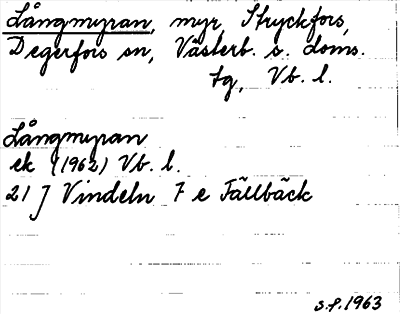 Långmyran, myr, Stryckfors,
Degerfors sn, Västerb. s. doms.
tg, Vb. l.
Långmyran
ek (1962) Vb. l.
21 J Vindeln 7 e Fällbäck
s.f. 1963